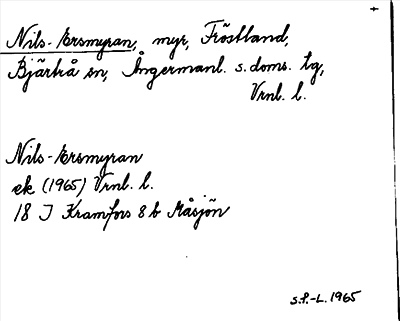 Nils-Ersmyran, myr, Fröstland,
Bjärtrå sn, Ångermanl. s. doms. tg,
Vrnl. l.
Nils-Ersmyran
ek (1965) Vrnl. l.
18 I Kramfors 8 b Måsjön
S.P.-L. 1965